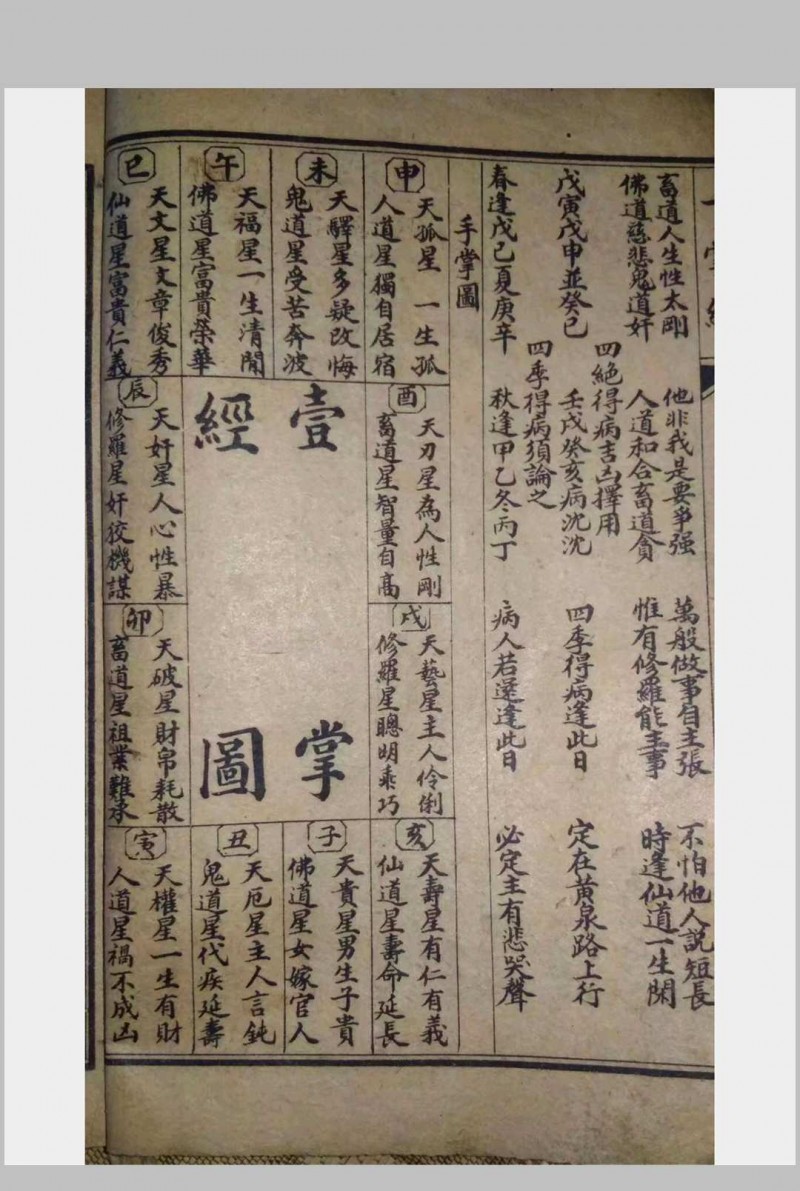 畜道人生性太剛 他非我是要爭强 萬般做事自主張 不怕他人説短長
佛道慈悲鬼道奸 人道和合畜道貪 惟有修羅能主事 時逢仙道一生閑
四絕得病吉凶擇用
戊寅戊申並癸巳 壬戌癸亥病沈沈 四季得病逢此日 定在黃泉路上行
四季得病須論之
春逢戊己夏庚辛 秋逢甲乙冬丙丁 病人若還逢此日 必定主有悲哭聲
手掌圖
申
天孤星一生孤
人道星獨自居宿
未
天驛星多疑改悔
鬼道星受苦奔波
午
天福星一生清閒
佛道星富貴榮華
巳
天文星文章俊秀
仙道星富貴仁義
酉
天刃星為人性剛
畜道星智量自高
戌
天藝星主人伶俐
修羅星聰明乖巧
壹掌
經圖
辰
天奸星人心性暴
修羅星奸狡機謀
卯
天破星財帛耗散
畜道星祖業難承
亥
天壽星有仁有義
仙道星壽命延長
子
天貴星男生子貴
佛道星女嫁官人
丑
天厄星主人言鈍
鬼道星代疾延壽
寅
天權星一生有財
人道星禍不成凶